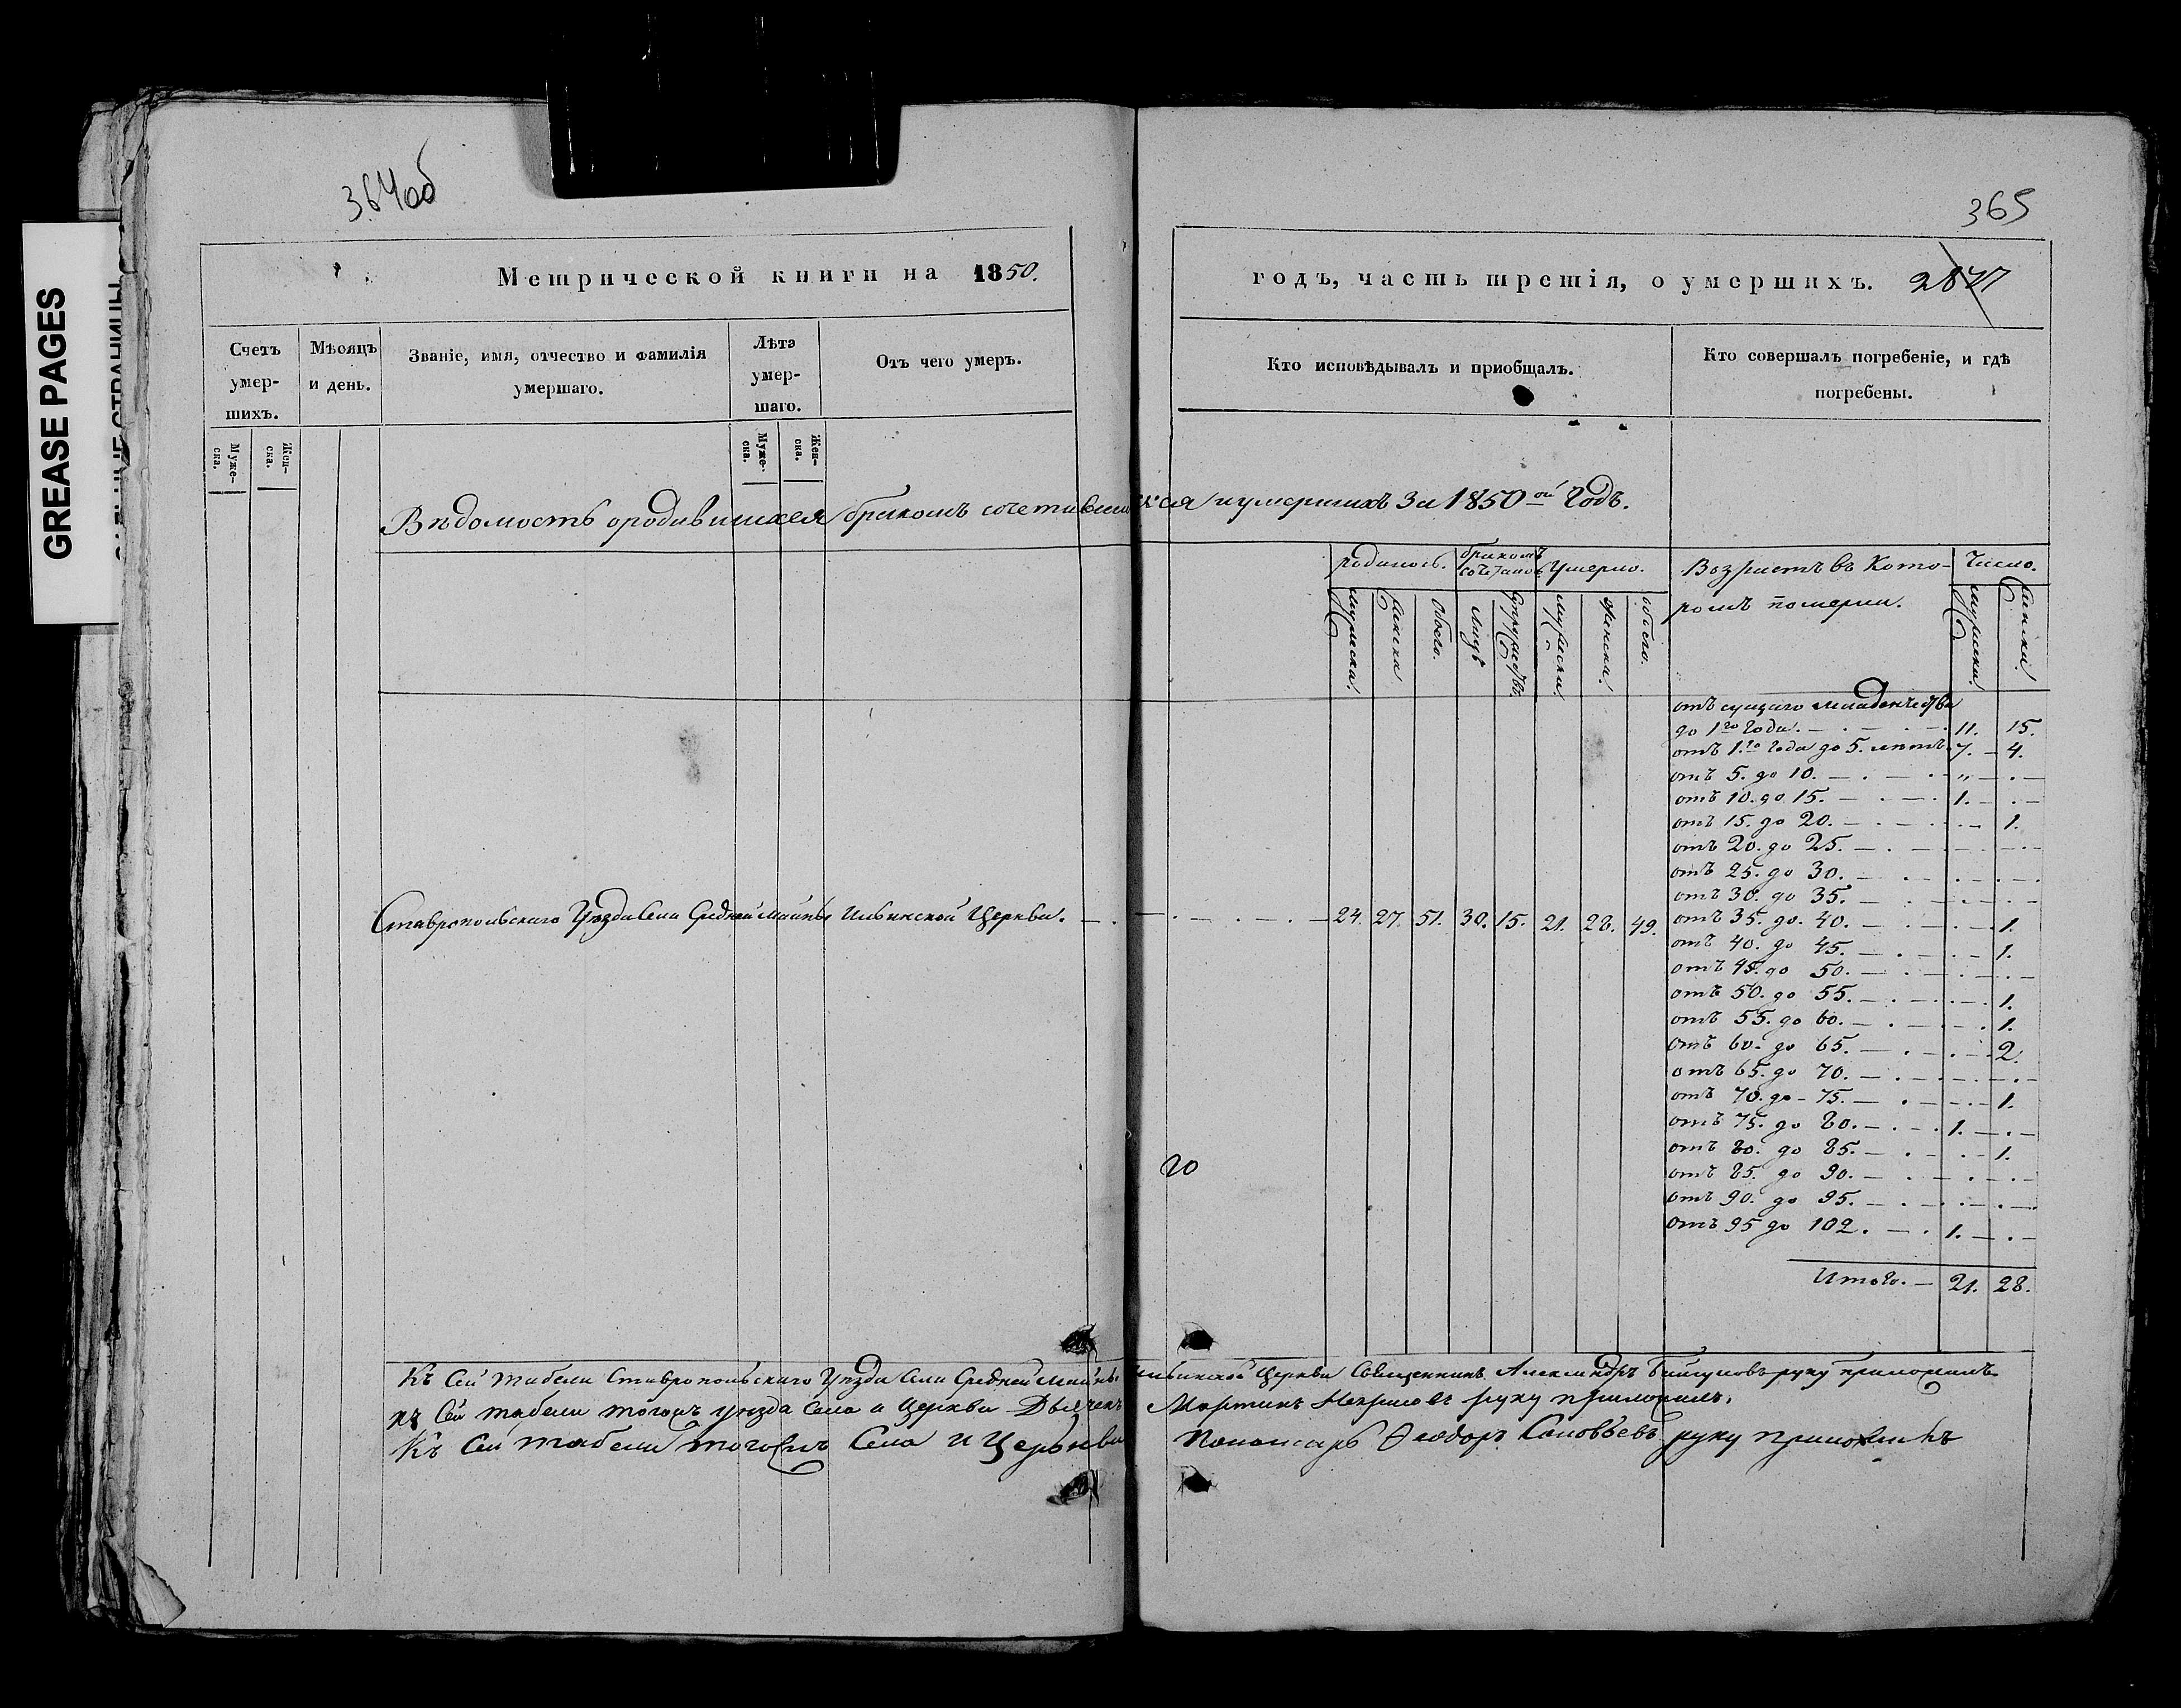 GREASE PAGES
364об
Метрической книги на 1850.
Счетъ умер-шихъ.
Мѣсяцъ и день.
Званіе, имя, отчество и фамилія умершаго.
Лѣта умер-шаго.
Отъ чего умеръ.
Муже-ска.
Жен-ска.
Муже-ска.
Жен-ска.
365
годъ, часть третія, о умершихъ.
Кто исповѣдывалъ и приобщалъ.
Кто совершалъ погребеніе, и гдѣ погребены.
Вѣдомость о родившихся бракомъ сочетавшихся и умершихъ за 1850ой Годъ.
родилось.
бракомъ
Умерло.
Возрастъ въ кото-
ромъ померли.
Число.
мужеска.
женска
обоего.
лицъ
супружествъ
мужеска.
женска.
обоего.
мужеска.
женска.
отъ сущаго младенчества
до 1го Года. 11. 15.
отъ 1.го Года до 5. лѣтъ 7. 4.
отъ 5. до 10. — „ —
отъ 10. до 15. — 1. —
отъ 15. до 20. — 1.
отъ 20. до 25. —
отъ 25. до 30. —
отъ 30. до 35. —
Ставропольскаго Уѣзда Села Средней Майны Ильинской Церкви. — 24. 27. 51. 30. 15. 21. 28. 49.
отъ 35. до 40. — 1.
отъ 40. до 45. — 1.
отъ 45. до 50. —
отъ 50. до 55. — 1.
отъ 55. до 60. — 1.
отъ 60. до 65. — 2.
отъ 65. до 70. —
отъ 70. до 75. — 1.
отъ 75. до 80. — 1. —
отъ 80. до 85. — 1.
отъ 85. до 90. —
отъ 90. до 95. —
отъ 95 до 102. — 1. —
Итого. — 21. 28.
20
Къ сей табели Ставропольскаго Уѣзда Села Средней Майны Ильинской Церкви Священникъ Александръ руку приложилъ
къ сей табели тогожъ уѣзда села и церкви Дьячекъ Мартинъ руку приложилъ.
Къ сей табели тогожъ Села и Церкви Пономарь Ѳеодоръ Соловьевъ руку приложилъ